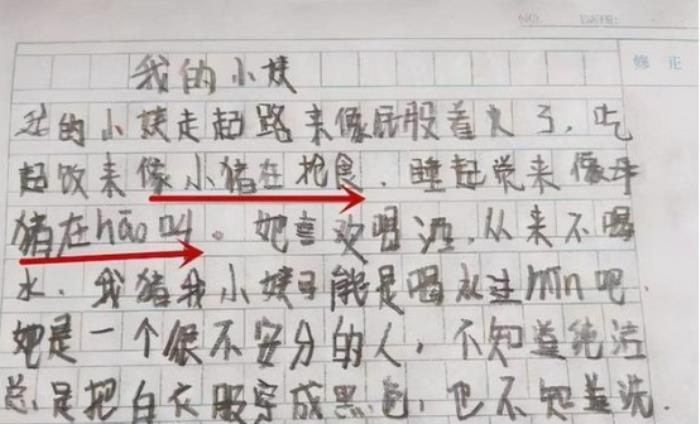 NO. DATE:
修 正
我的小姨
我的小姨走起路来像屁股着火了，吃
起饭来像小猪在抢食，睡起觉来像母
猪在hāo叫。她喜欢喝酒，从来不喝
水，我猜我小姨可能是喝水过mǐn吧
她是一个很不安分的人，不知道纯洁
总是把白衣服穿成黑色，也不知道洗.